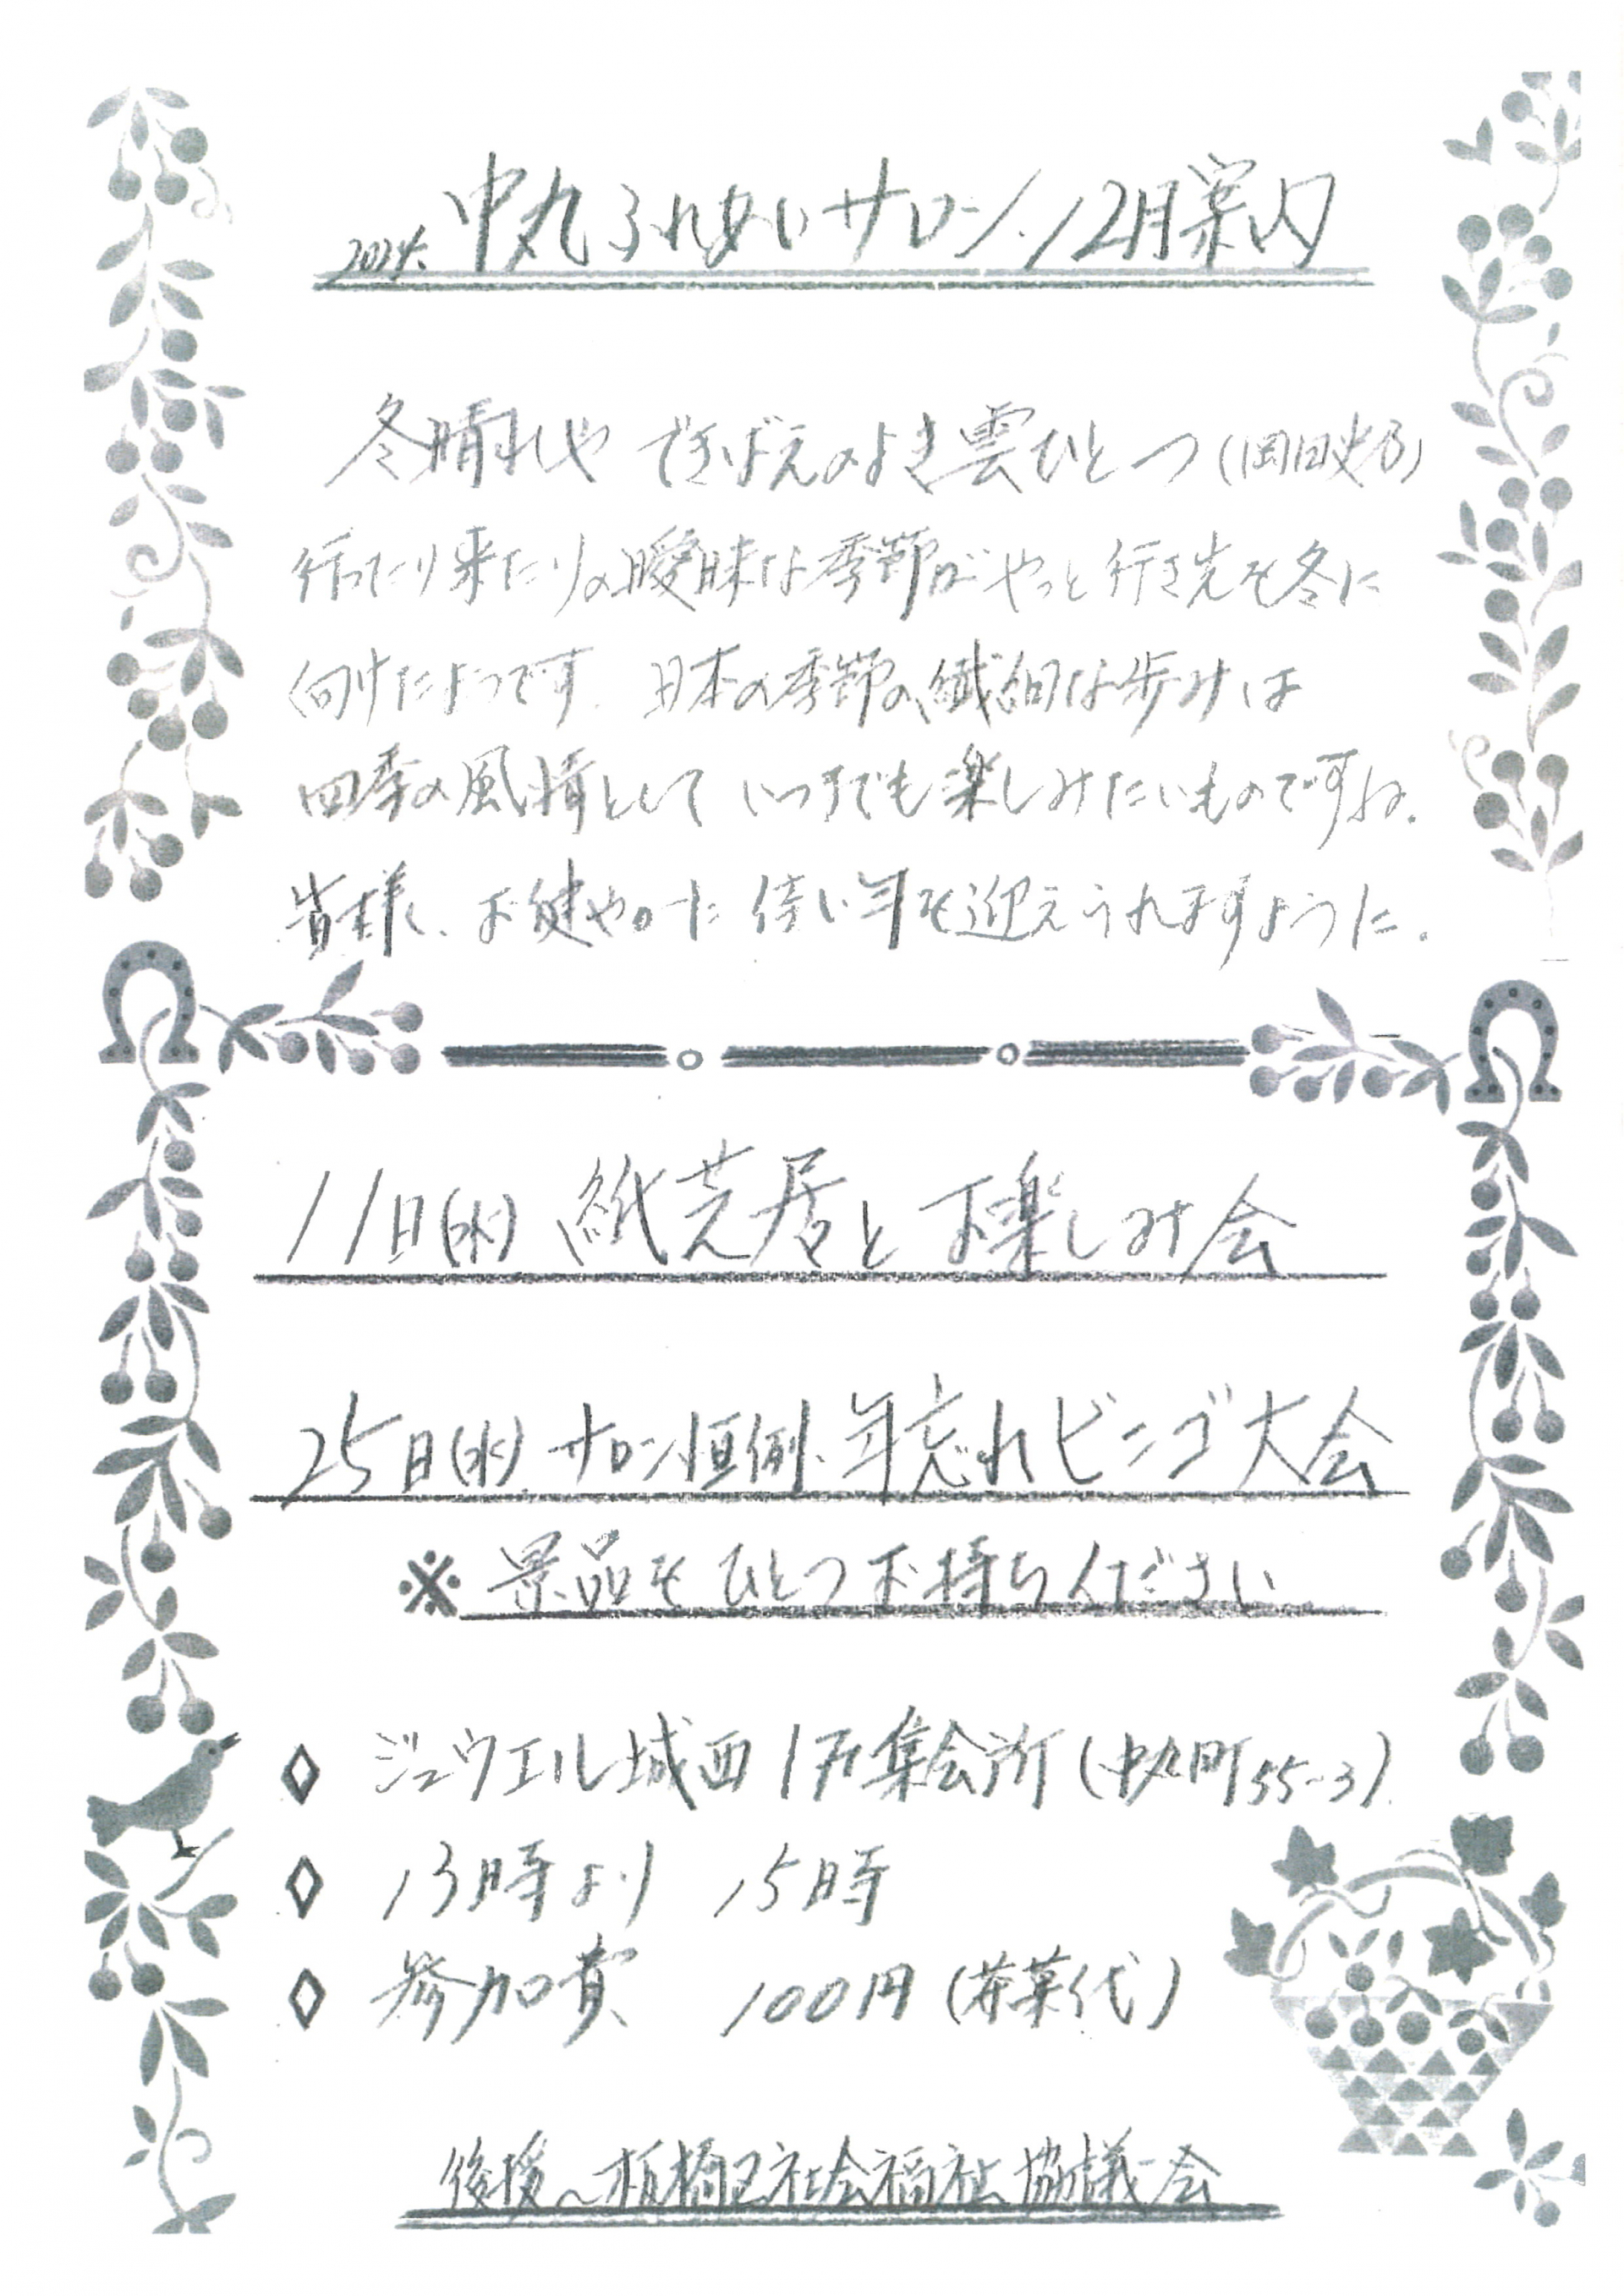 2024. 中丸ふれあいサロン.12月案内
冬晴れや できばえのよき雲ひとつ(岡田史乃)
行ったり来たりの曖昧な季節がやっと行き先を冬に
向けたようです. 日本の季節の繊細な歩みは
四季の風情として いつまでも楽しみたいものですね.
皆様、お健やかに 佳い年を迎えられますように.
11日(水) 紙芝居とお楽しみ会
25日(水) サロン恒例、年忘れビンゴ大会
※ 景品をひとつお持ちください
◇ ジュウエル城西1F集会所(中丸町55-3)
◇ 13時より 15時
◇ 参加費 100円(茶菓代)
後援〜板橋区社会福祉協議会